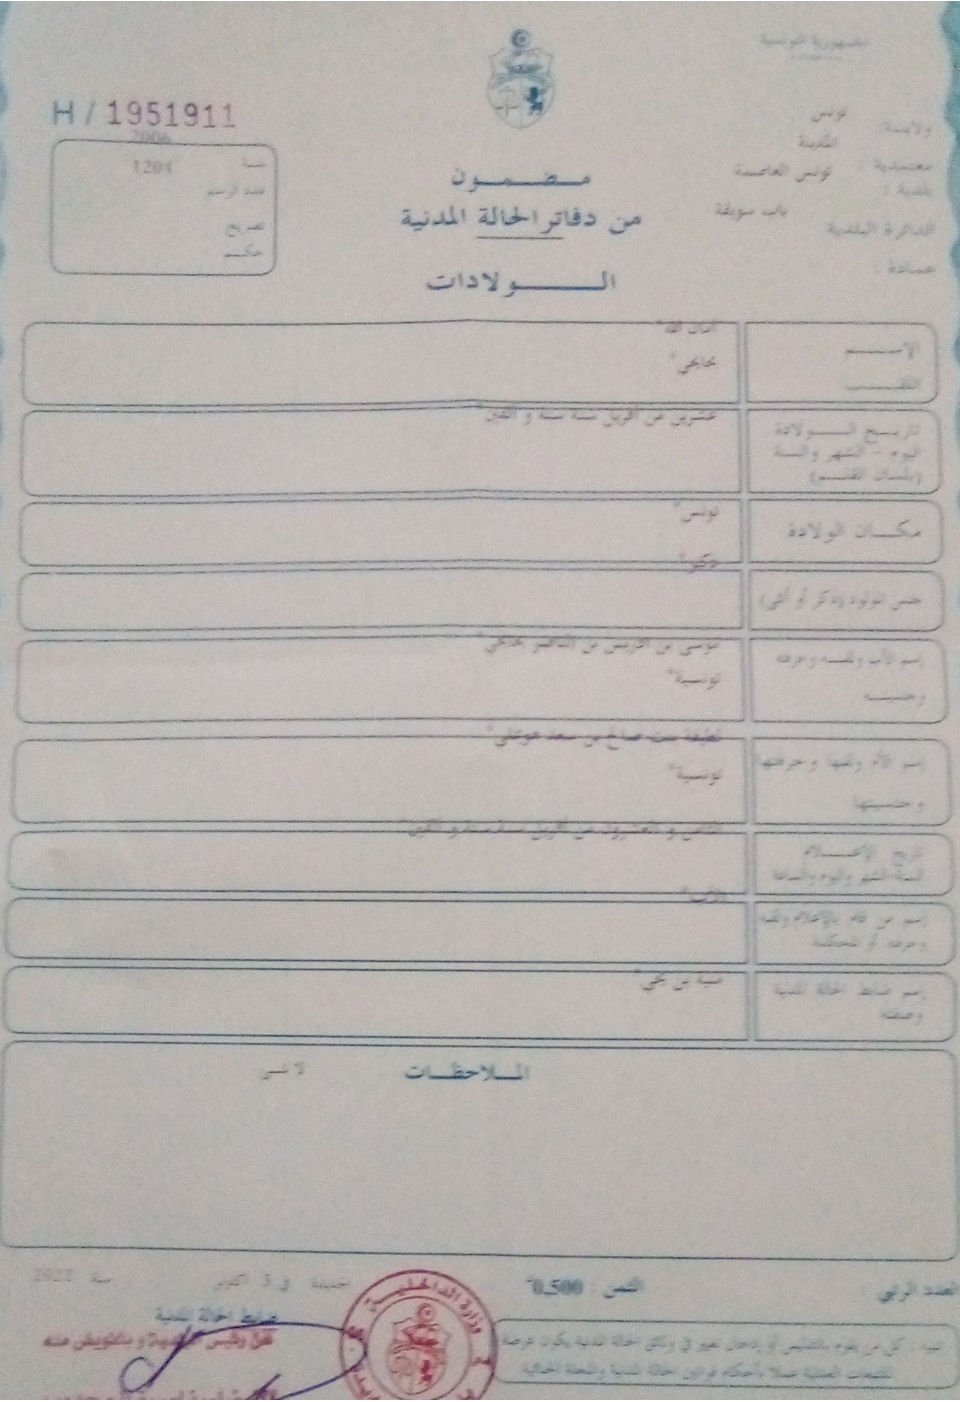 الجمهورية التونسية
H / 1951911
ولاية: تونس
معتمدية: المدينة
بلدية: تونس العاصمة
الدائرة البلدية باب سويقة
عمادة :
2006
سنة
1204
عدد الرسم
تصريح
حكم
مضمون
من دفاتر الحالة المدنية
الولادات
الإسم
أمان الله*
اللقب
تاريخ الولادة
اليوم - الشهر والسنة
(بلسان القلم)
عشرين من أفريل سنة ستة و ألفين*
مكان الولادة
تونس*
جنس المولود (ذكر أو أنثى)
ذكر*
إسم الأب ولقبه وحرفته
وجنسيته
موسى بن ادريس بن الناصر
تونسية*
إسم الأم ولقبها وحرفتها
وجنسيتها
لطيفة بنت صالح بن سعد
تونسية*
تاريخ الإعلام
السنة-الشهر واليوم والساعة
الثامن و العشرون من أفريل سنة ستة و ألفين*
إسم من قام بالإعلام ولقبه
وحرفته أو المحكمة
الأب*
إسم ضابط الحالة المدنية
وصفته
الملاحظات
لا شئ
العدد الرتبي
الثمن : 0,500
في 3 أكتوبر سنة 2022
ضابط الحالة المدنية
تنبيه : كل من يقوم بالتدليس أو إدخال تغيير في وثائق الحالة المدنية يكون عرضة
للتتبعات العدلية عملا بأحكام قوانين الحالة المدنية والمجلة الجنائية
وزارة الداخلية